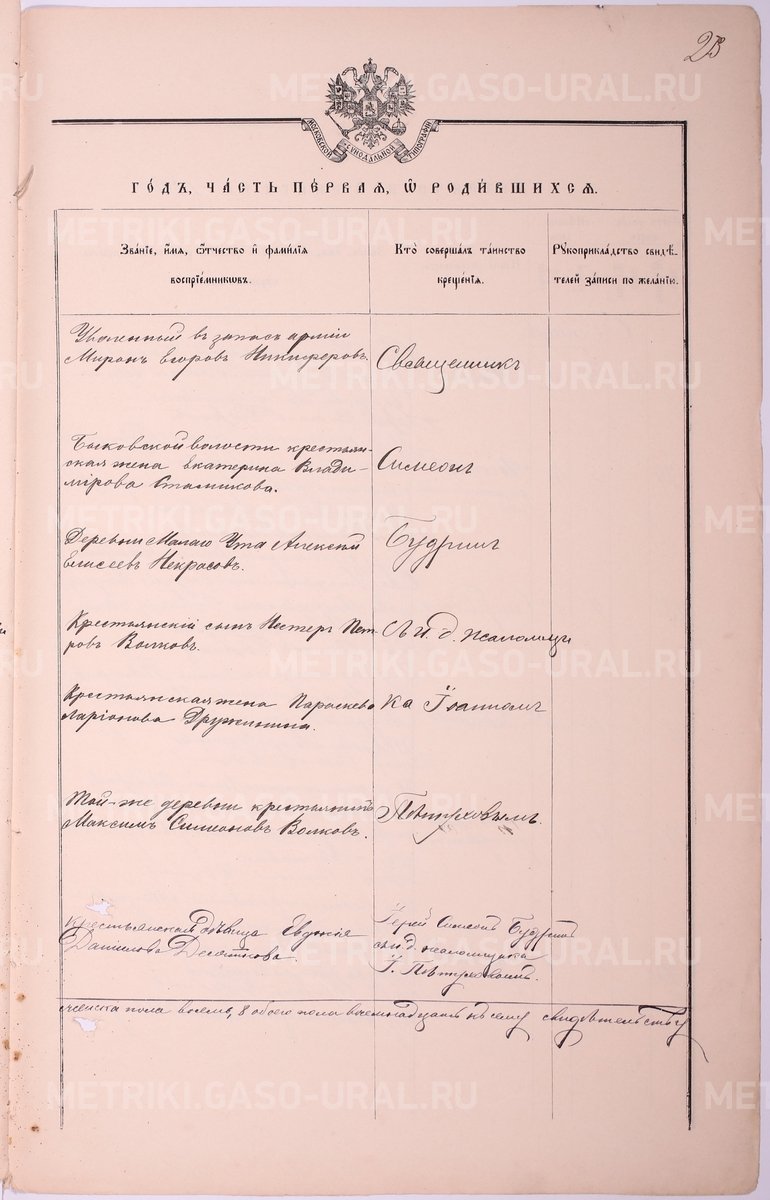 28
МОСКОВСКОЙ СѴНОДАЛЬНОЙ ТИПОГРАФІИ
ГО́ДЪ, ЧА́СТЬ ПЕ́РВАЯ, Ѡ҆ РОДИ́ВШИХСѦ.
Зва́нїе, и҆́мѧ, ѻ҆́тчество и҆ фами́лїѧ
воспрїе́мникѡвъ.
Кто̀ соверша́лъ та́инство
креще́нїѧ.
Рꙋкоприкла́дство свидѣ́-
телей за́писи по жела́нїю.
Уволенный въ запасъ арміи
Миронъ Егоровъ Никифоровъ.
Священникъ
Быковской волости крестьян-
ская жена Екатерина Влади-
мірова
Симеонъ
Деревни Малаго Ута Алексѣй
Елисеевъ Некрасовъ.
Будринъ
Крестьянскій сынъ Нестеръ Пет-
ровъ Волковъ.
съ и. д. псаломщи
Крестьянская жена Параскева
Ларіонова Дружинина.
ка Іоанномъ
Той-же деревни крестьянинъ
Максимъ Симеоновъ Волковъ.
Пѣтуховымъ.
Крестьянская дѣвица Евдокія
Данилова
Іерей Симеонъ Будринъ
съ и. д. псаломщика
І. Пѣтуховымъ.
женска пола восемь, 8 обоего пола восемнадцать къ сему свидѣтельству
METRIKI.GASO-URAL.RU